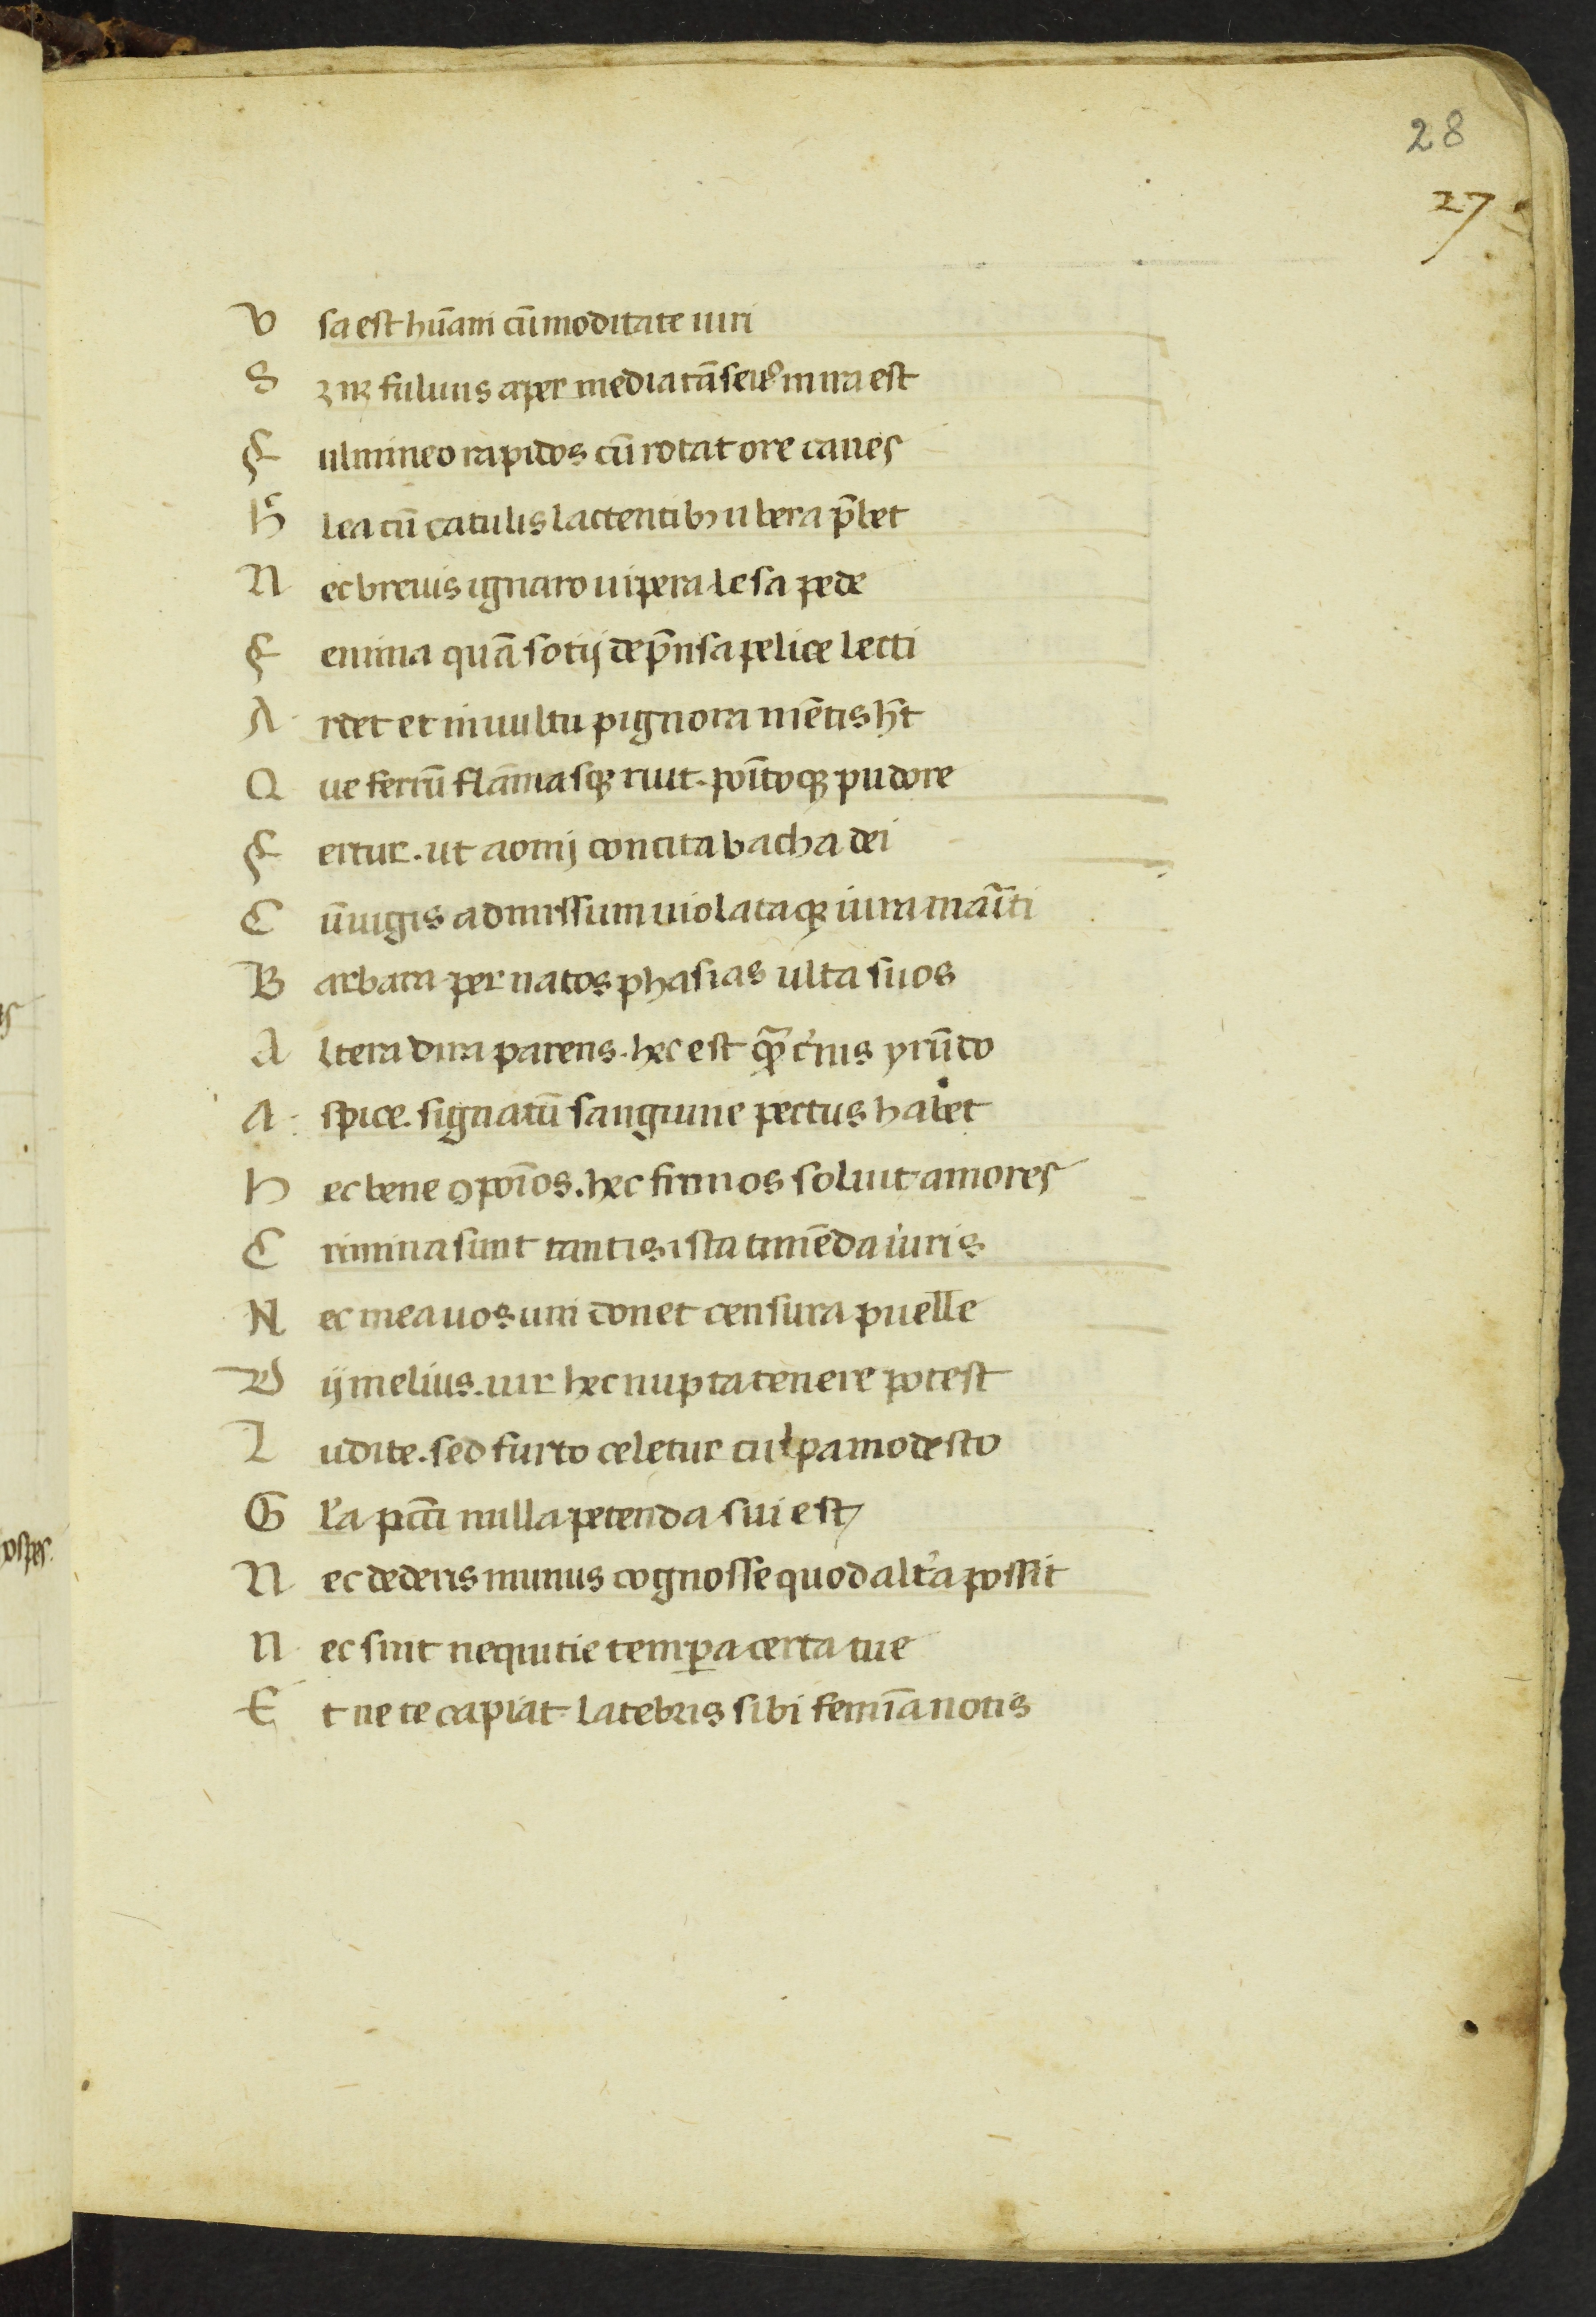 28
27
V sa est hūani cū moditate uiri
S ꝫ nꝫ fuluus aper media tā seuꝰ in ira est
F ulmineo rapidos cū rotat ore canes
H͑ lea cū catulis lactentibꝫ ubera p̄bet
N ec breuis ignaro uipera lesa pede
F emina quā sotij dep̄nsa pelice lecti
A rdet et in uultu pignora mētis h̄t
Q ue ferrū flāmasqꝫ ruit. poītoqꝫ pudore
F ertur. ut aonij concita bacha dei
C ūiugis admissum uiolataqꝫ iura maīti
B arbara per natos phasias ulta suos
A ltera dira parens. hec est quā c̓nis yrūdo
A spice. signatū sanguine pectus habet
H ec bene ꝯpoīos. hec firmos soluit amores
C rimina sunt tantis ista timēda iuris
N ec mea uos uni donet censura puelle
D ij melius. uir hec nupta tenere potest
L udite. sed furto celetur culpa modesto
G l̓a pcc̄i nulla petenda sui est
N ec dederis munus cognosse quod alt̓a possit
N ec sint nequitie tempa certa tue
E t ne te capiat latebris sibi femīa notis